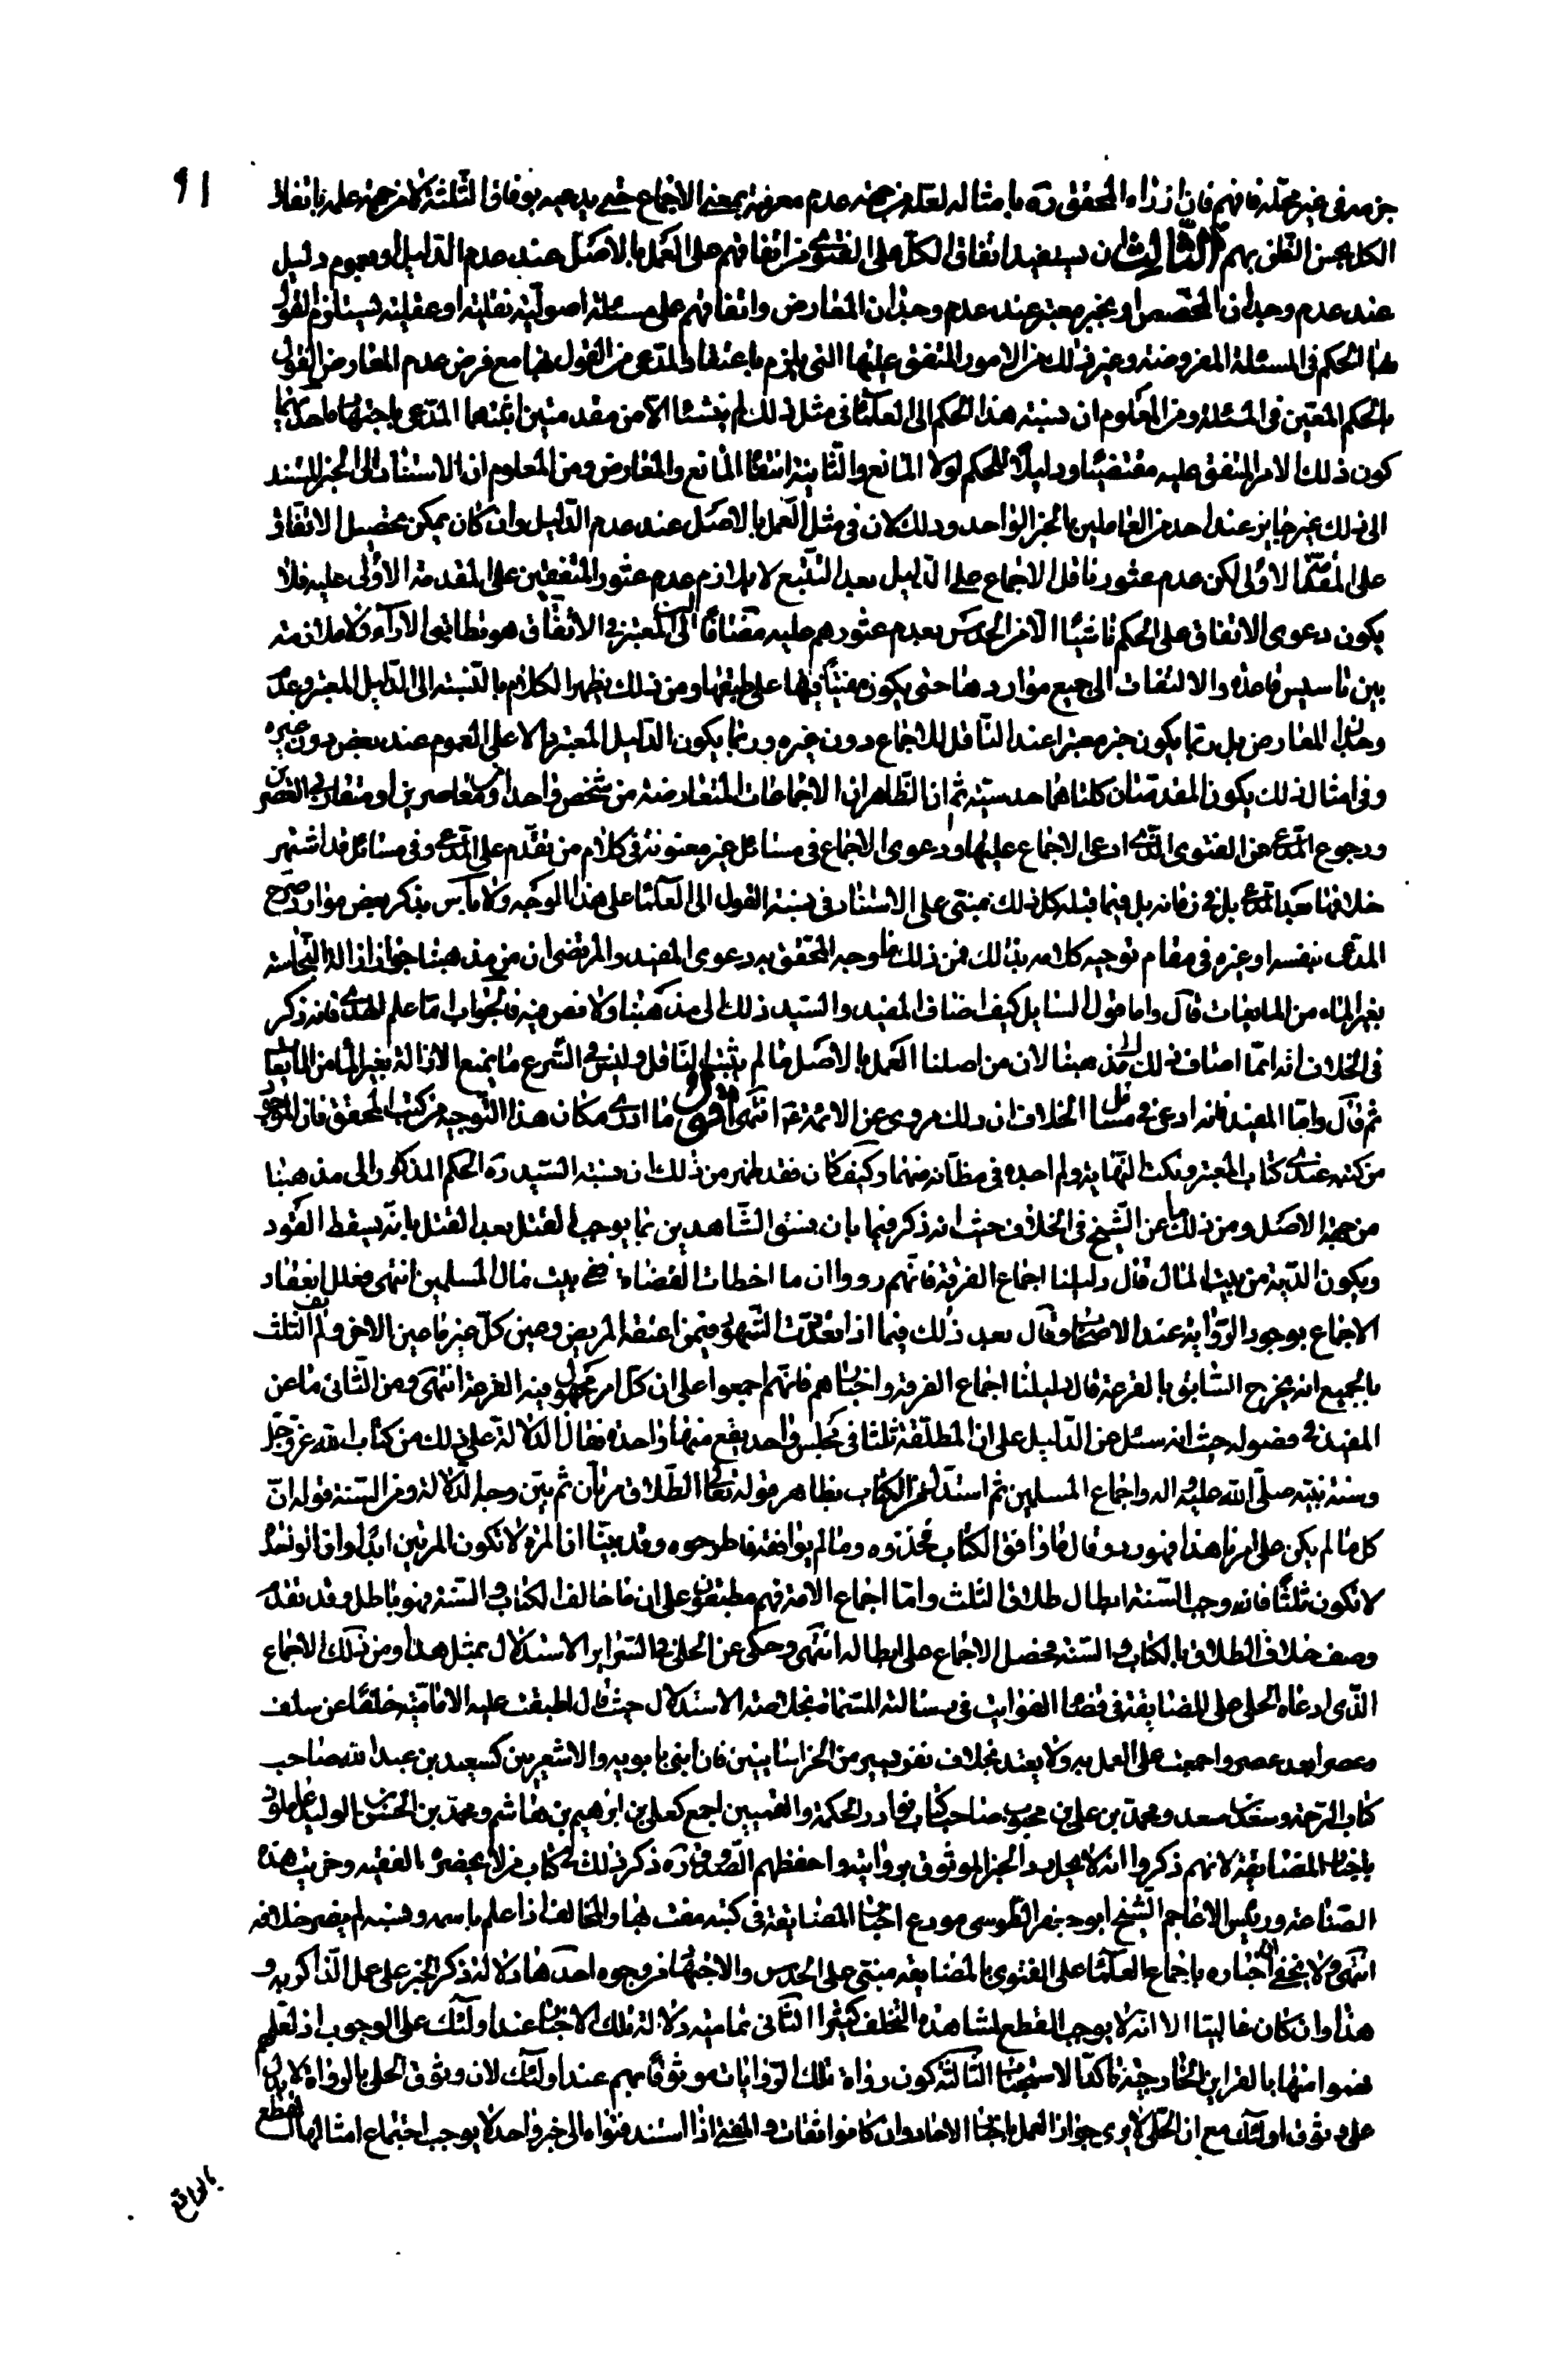 ٩١
جزمه في غير محله فافهم فان ازراء المحقق ره بامثاله لعله من جهة عدم معرفته بمعنى الاجماع حتى يدعيه بوفاق الثلثة لا من جهة علمه باتفاق
الكل بحسن الظن بهم الثالث ان يستفيد اتفاق الكل على الفتوى من اتفاقهم على العمل بالاصل عند عدم الدليل او بعموم دليل
عند عدم وجدان المخصص او بخبر معتبر عند عدم وجدان المعارض واتفاقهم على مسئلة اصولية نقلية او عقلية يستلزم القول
بها الحكم في المسئلة المفروضة وغير ذلك من الامور المتفق عليها التي يلزم باعتقاد المدعي من القول بها مع فرض عدم المعارض القول
بالحكم المعين في المسئلة ومن المعلوم ان نسبة هذا الحكم الى العلماء في مثل ذلك لم ينشئا الا من مقدمتين اثبتهما المدعي باجتهاده احديهما
كون ذلك الامر المتفق عليه مقتضيا ودليلا للحكم لولا المانع والثانية انتفاء المانع والمعارض ومن المعلوم ان الاستناد الى الخبر المستند
الى ذلك غير جايز عند احد من العاملين بالخبر الواحد وذلك لان في مثل العمل بالاصل عند عدم الدليل وان كان يمكن تحصيل الاتفاق
على المقدمة الاولى لكن عدم عثور ناقل الاجماع على الدليل بعد التتبع لا يلازم عدم عثور المتفقين على المقدمة الاولى عليه فلا
يكون دعوى الاتفاق على الحكم ناشئا الا من الحدس بعدم عثورهم عليه مضافا الى ان المعتبر في الاتفاق هو تطابق الاراء ولا ملازمة
بين تاسيس قاعدة والالتفات الى جميع مواردها حتى يكون مفتيا فيها على طبقها ومن ذلك يظهر الكلام بالنسبة الى الدليل المعتبر وعدم
وجدان المعارض بل ربما يكون خبر معتبرا عند الناقل للاجماع دون غيره وربما يكون الدليل المعتبر دالا على العموم عند بعض دون غيره
وفي امثال ذلك يكون المقدمتان كلتاهما حدسية ثم ان الظاهر ان الاجماعات المتعارضة من شخص واحد او من معاصرين او متقاربي العصر
ورجوع المدعي عن الفتوى الذي ادعى الاجماع عليها ودعوى الاجماع في مسائل غير معنونة في كلام من تقدم على المدعي وفي مسائل قد اشتهر
خلافها بعد المدعي بل في زمانه بل فيما قبله كل ذلك مبني على الاستناد في نسبة القول الى العلماء على هذا الوجه ولا باس بذكر بعض موارد صرح
المدعي بنفسه او غيره في مقام توجيه كلامه بذلك فمن ذلك ما وجه المحقق به دعوى المفيد والمرتضى ان من مذهبنا جواز ازالة النجاسة
بغير الماء من المايعات قال واما قول السايل كيف اضاف المفيد والسيد ذلك الى مذهبنا ولا نص فيه فالجواب اما علم الهدى فانه ذكر
في الخلاف انه انما اضاف ذلك الى مذهبنا لان من اصلنا العمل بالاصل ما لم يثبت الناقل وليس في الشرع ما يمنع الازالة بغير الماء من المايعات
ثم قال واما المفيد فانه ادعى في مسائل الخلاف ان ذلك مروي عن الائمة ع انتهى اقول ما ادري مكان هذا التوجيه من كتب المحقق فان الموجود
من كتبه عندي كتاب المعتبر ونكت النهاية ولم اجده في مظانه منهما وكيف كان فقد ظهر من ذلك ان نسبة السيد ره الحكم المذكور الى مذهبنا
من جهة الاصل ومن ذلك ما عن الشيخ في الخلاف حيث انه ذكر فيما بان فسق الشاهدين بما يوجب القتل بعد القتل بانه يسقط القود
ويكون الدية من بيت المال قال دليلنا اجماع الفرقة فانهم رووا ان ما اخطات القضاة ففي بيت مال المسلمين انتهى فعلل انعقاد
الاجماع بوجود الرواية عند الاصحاب وقال بعد ذلك فيما اذا تعددت الشهود فيمن اعتقه المريض وعين كل غير ما عين الاخر ولم يف الثلث
بالجميع انه يخرج السابق بالقرعة قال دليلنا اجماع الفرقة واخبارهم فانهم اجمعوا على ان كل امر مجهول فيه القرعة انتهى ومن الثاني ما عن
المفيد في فصوله حيث انه سئل عن الدليل على ان المطلقة ثلثا في مجلس واحد يقع منها واحدة فقال الدلالة على ذلك من كتاب الله عز وجل
وسنة نبيه صلى الله عليه واله واجماع المسلمين ثم استدل من الكتاب بظاهر قوله تعالى الطلاق مرتان ثم بين وجه الدلالة ومن السنة قوله ان
كل ما لم يكن على امرنا هذا فهو رد وقال ما وافق الكتاب فخذوه وما لم يوافقه فاطرحوه وقد بينا ان المرة لا تكون المرتين ابدا وان الواحدة
لا تكون ثلثا فانه وجب السنة ابطال طلاق الثلث واما اجماع الامة فهم مطبقون على ان ما خالف الكتاب والسنة فهو باطل وقد تقدم
وصف خلاف الطلاق بالكتاب والسنة فحصل الاجماع على ابطاله انتهى وحكى عن الحلي في السرائر الاستدلال بمثل هذا ومن ذلك الاجماع
الذي ادعاه الحلي على المضايقة في قضاء الفوايت في رسالته المسماة بخلاصة الاستدلال حيث قال اطبقت عليه الامامية خلفا عن سلف
وعصرا بعد عصر واجمعت على العمل به ولا يعتد بخلاف نفر يسير من الخراسانيين فان ابني بابويه والاشعريين كسعيد بن عبد الله صاحب
كتاب الرحمة وسعد بن سعد ومحمد بن علي بن محبوب صاحب كتاب نوادر الحكمة والقميين اجمع كعلي بن ابرهيم بن هاشم ومحمد بن الحسن بن الوليد عاملون
باخبار المضايقة لانهم ذكروا انه لا يحل رد الخبر الموثوق برواته واحفظهم الصدوق ره ذكر ذلك في كتاب من لا يحضره الفقيه وخريت هذه
الصناعة ورئيس الاعاجم الشيخ ابو جعفر الطوسي مودع اخبار المضايقة في كتبه مفت بها والمخالف اذا علم باسمه ونسبه لم يضر خلافه
انتهى ولا يخفى ان اخباره باجماع العلماء على الفتوى بالمضايقة مبني على الحدس والاجتهاد من وجوه احدها دلالة ذكر الخبر على عمل الذاكر به و
هذا وان كان غالبيا الا انه لا يوجب القطع لمشاهدة التخلف كثيرا الثاني تمامية دلالة تلك الاخبار عند اولئك على الوجوب اذ لعلهم
فهموا منها بالقراين الخارجية تاكد الاستحباب الثالث كون رواة تلك الروايات موثوقا بهم عند اولئك لان وثوق الحلي بالرواة لا يدل
على وثوق اولئك مع ان الحلي لا يرى جواز العمل باخبار الاحاد وان كانوا ثقات والمفتي اذا استند فتواه الى خبر واحد لا يوجب اجتماع امثالها القطع
بالواقع